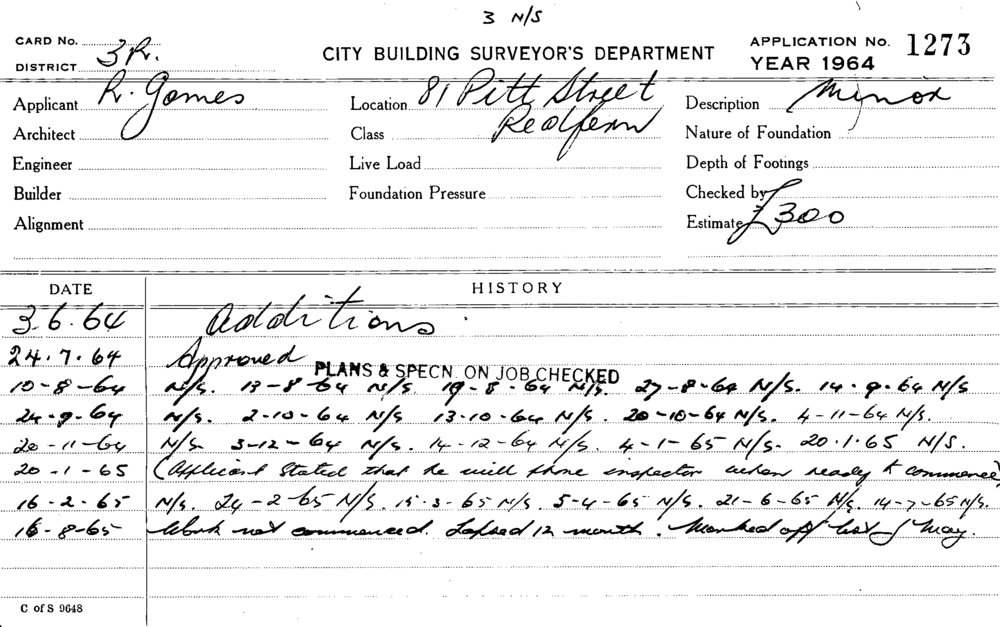 3 N/S
CARD No.
DISTRICT 3R.
CITY BUILDING SURVEYOR'S DEPARTMENT
APPLICATION No. 1273
YEAR 1964
Applicant R. Gomes
Location 81 Pitt Street
Description Minor
Architect
Class Redfern
Nature of Foundation
Engineer
Live Load
Depth of Footings
Builder
Foundation Pressure
Checked by
Alignment
Estimate £300
DATE HISTORY
3.6.64 Additions
24.7.64 Approved
PLANS & SPECN. ON JOB CHECKED
10-8-64 N/S. 13-8-64 N/S. 19-8-64 N/S. 27-8-64 N/S. 14.9.64 N/S
24-9-64 N/S. 2-10-64 N/S 13-10-64 N/S. 20-10-64 N/S. 4-11-64 N/S.
20-11-64 N/S. 3-12-64 N/S. 14-12-64 N/S. 4-1-65 N/S. 20.1.65 N/S.
20-1-65 (Applicant stated that he will phone inspector when ready to commence)
16-2-65 N/S. 24-2-65 N/S. 15-3-65 N/S. 5-4-65 N/S. 21-6-65 N/S. 14-7-65 N/S.
16-8-65 Work not commenced. Lapsed 12 month. Marked off list May.
C of S 9648